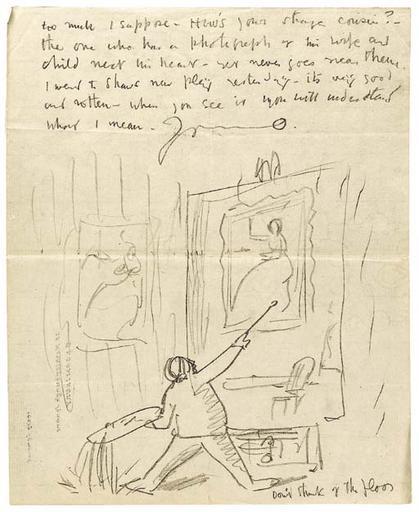 too much I suppose – Hows your strange cousin? –
the one who has a photograph of his wife and
child next his heart – yet never goes near them,
I went to Shaws new play yesterday – its very good
and rotten – when you see it you will understand
what I mean –
Don't of the floor